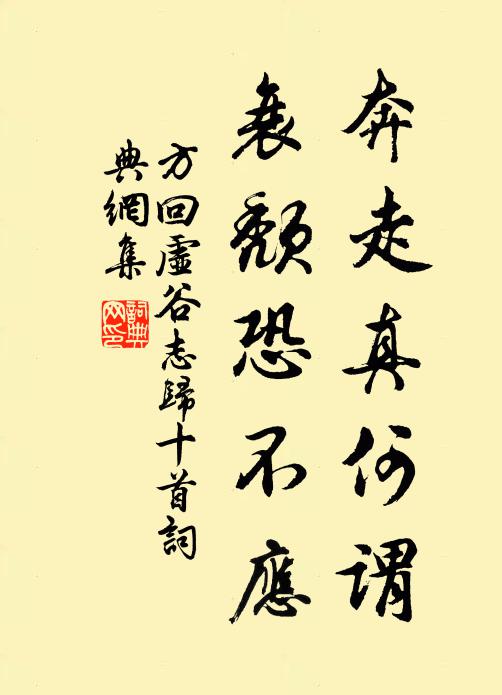 奔走真何謂
衰頹恐不應
方回虛谷志歸十首詞
典網集
詞典網印